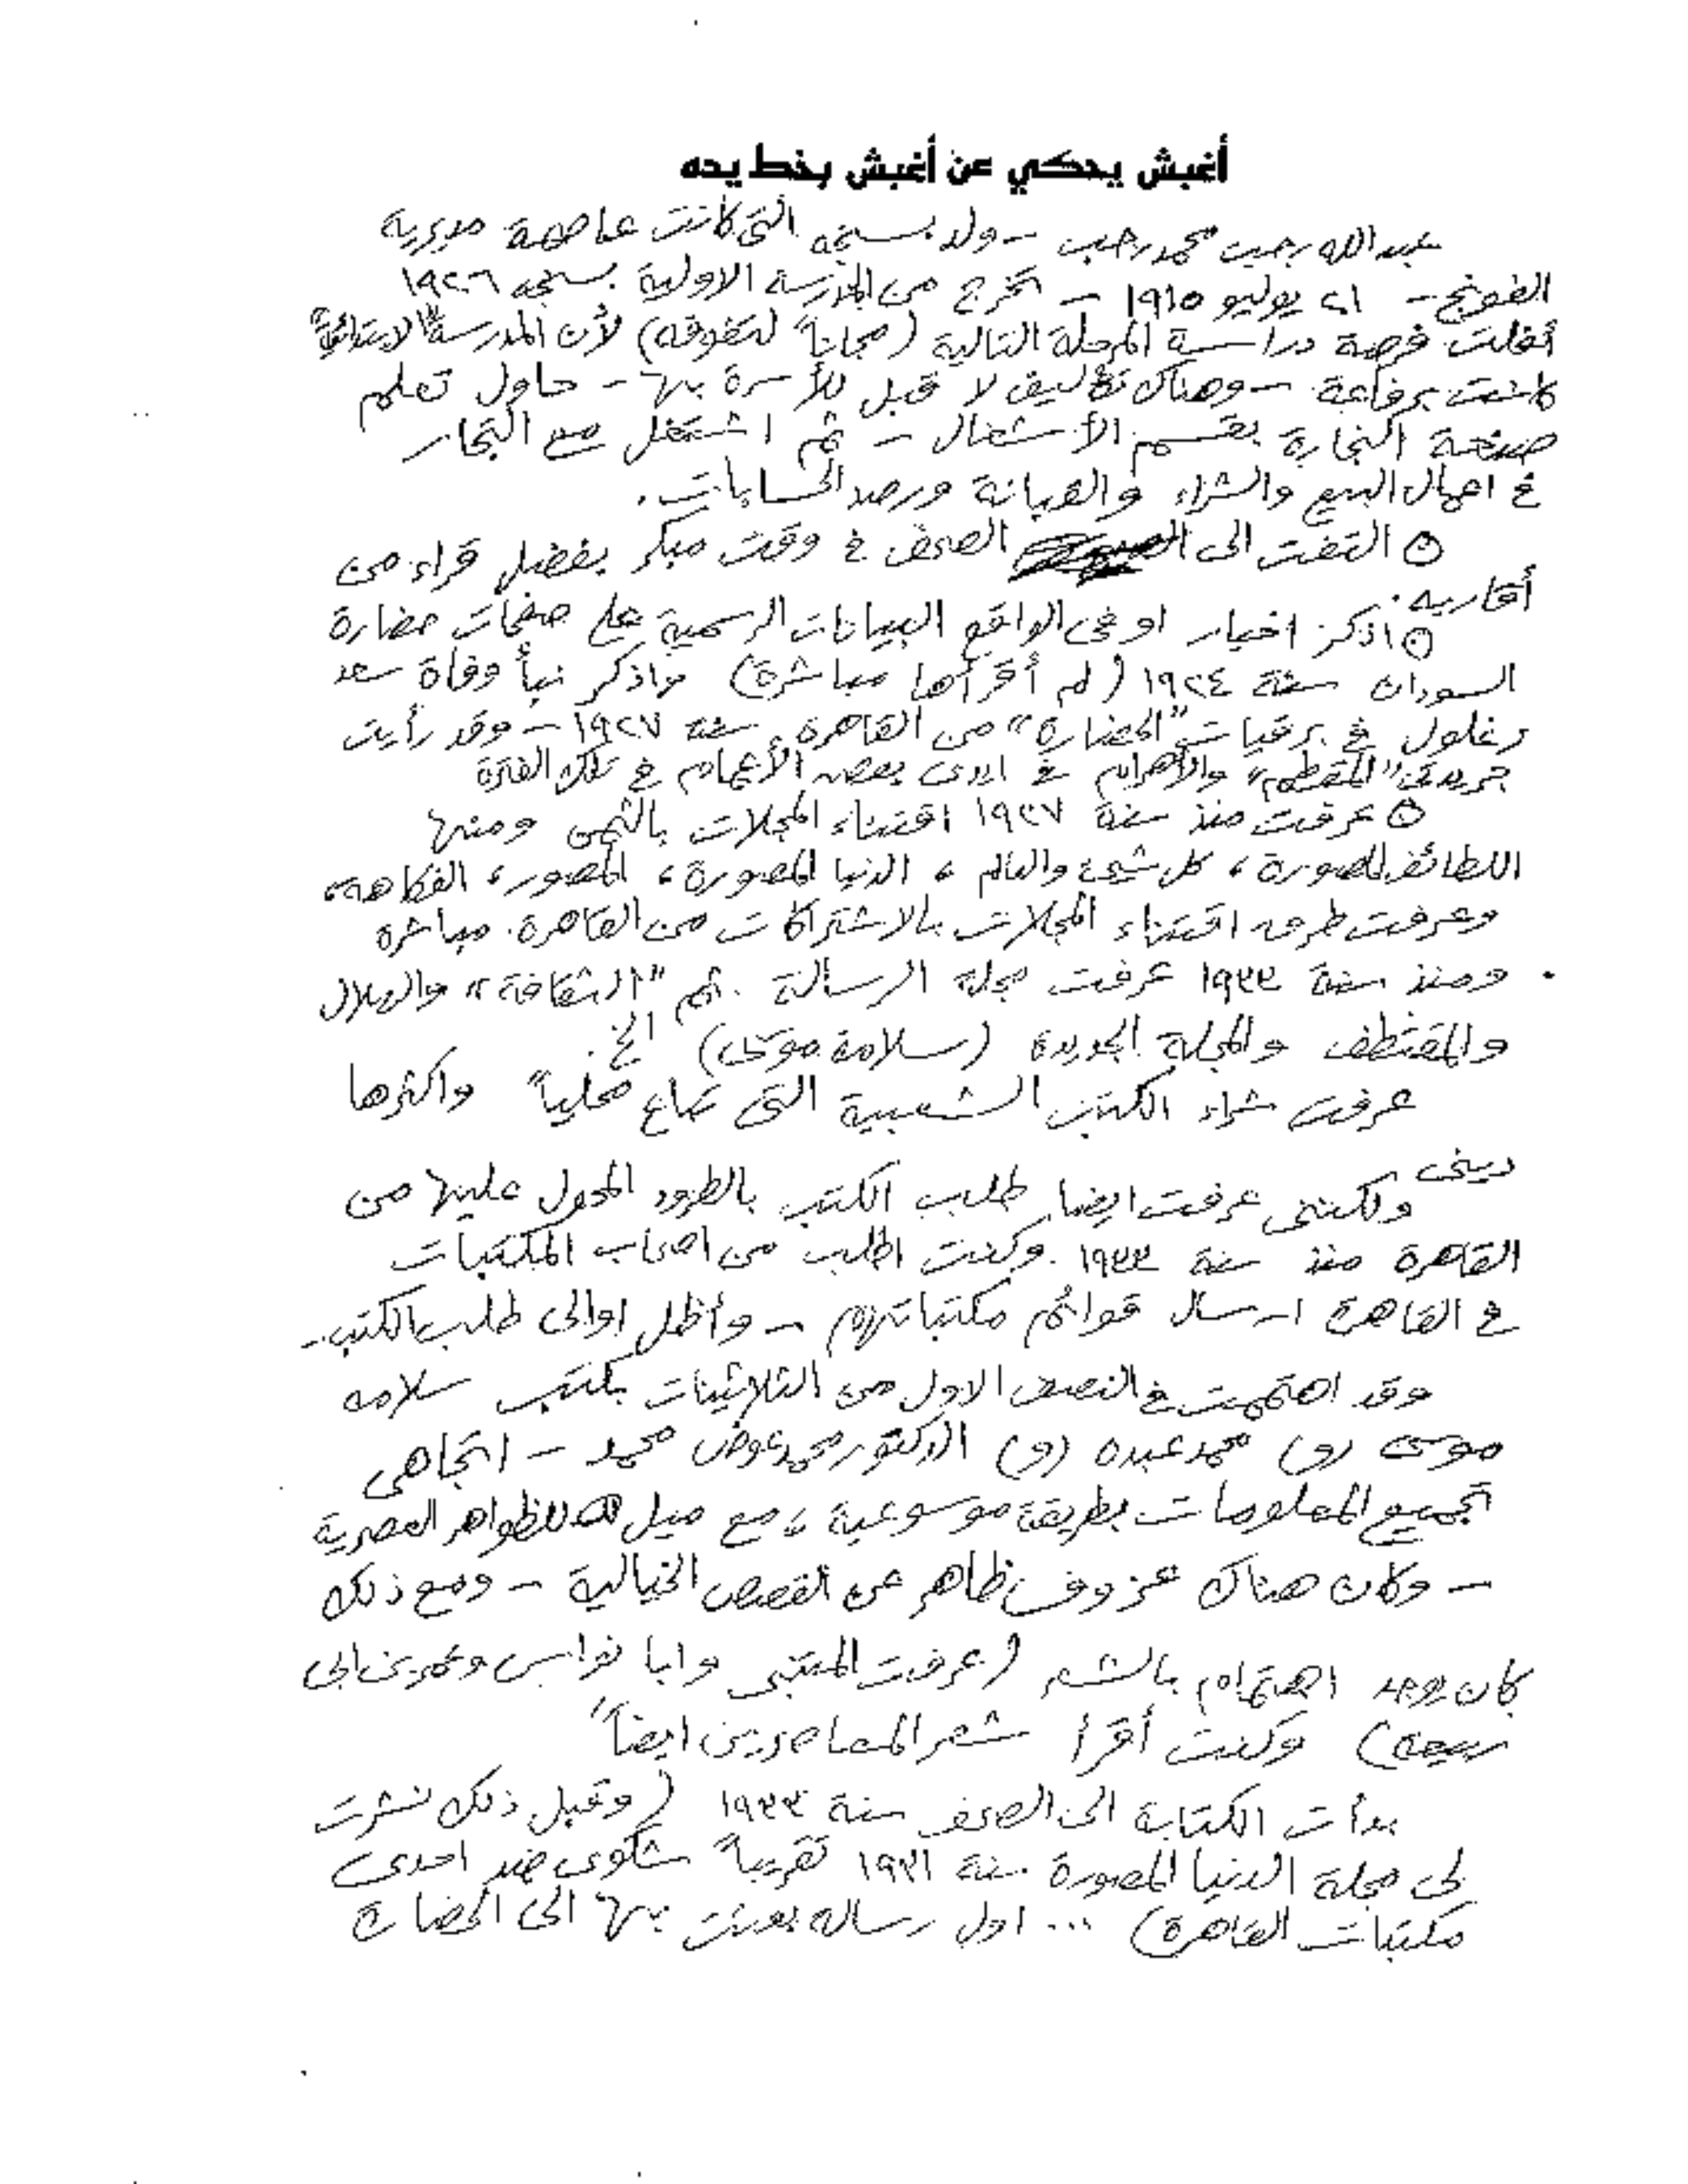 أغبش يحكي عن أغبش بخط يده
عبد الله رجب محمد رجب – ولد بسنجه التى كانت عاصمة مديرية
الفونج – ٢١ يوليو ١٩١٥ – تخرج من المدرسة الاولية بسنجه ١٩٢٦
أفلتت فرصة دراسة المرحلة التالية (مجاناً لتفوقه) لأن المدرسة "الابتدائية"
كانت برفاعة – وهناك تكاليف لا قبل للأسرة بها – حاول تعلم
صنعة النجارة بقسم الأشغال – ثم اشتغل مع التجار
فى اعمال البيع والشراء والقبانة ورصد الحسابات.
⊙ التفت الى الصحف فى وقت مبكر بفضل قراء من
أقاربه.
⊙ اذكر اخبار او فى الواقع البيانات الرسمية على صفحات حضارة
السودان سنة ١٩٢٤ (لم أقرأها مباشرة) واذكر نبأ وفاة سعد
زغلول فى برقيات "الحضارة" من القاهرة سنة ١٩٢٧ – وقد رأيت
جريدتى "المقطم" والأهرام فى ايدى بعض الأعمام فى تلك الفترة
⊙ عرفت منذ سنة ١٩٢٧ اقتناء المجلات بالثمن ومنها
اللطائف المصورة، كل شىء والعالم، الدنيا المصورة، المصور، الفكاهة،
وعرفت طرق اقتناء المجلات بالاشتراكات من القاهرة. مباشرة
. ومنذ سنة ١٩٣٣ عرفت مجلة الرسالة. ثم "الثقافة" والهلال
والمقتطف والمجلة الجديدة (سلامة موسى) الخ.
عرفت شراء الكتب الشعبية التى تباع محلياً واكثرها
دينى
ولكننى عرفت ايضا طلب الكتب بالطرود المحول عليها من
القاهرة منذ سنة ١٩٣٣. وكنت اطلب من اصحاب المكتبات
فى القاهرة ارسال قوائم مكتباتهم – وأظل اوالى طلب الكتب –
وقد اهتممت فى النصف الاول من الثلاثينات بكتب سلامه
موسى (و) محمد عبده (و) الدكتور محمد عوض محمد – اتجاهى
تجميع المعلومات بطريقة موسوعية، مع ميل للظواهر العصرية
– وكان هناك عزوف ظاهر عن القصص الخيالية – ومع ذلك
كان يوجد اهتمام بالشعر (عرفت المتنبى وابا نواس وعمر بن ابى
ربيعه) وكنت أقرأ شعر المعاصرين ايضاً
بدأت الكتابة الى الصحف سنة ١٩٣٣ (وقبل ذلك نشرت
لى مجلة الدنيا المصورة سنة ١٩٣١ تقريباً شكوى ضد احدى
مكتبات القاهرة) ... اول رساله بعثت بها الى الحضارة